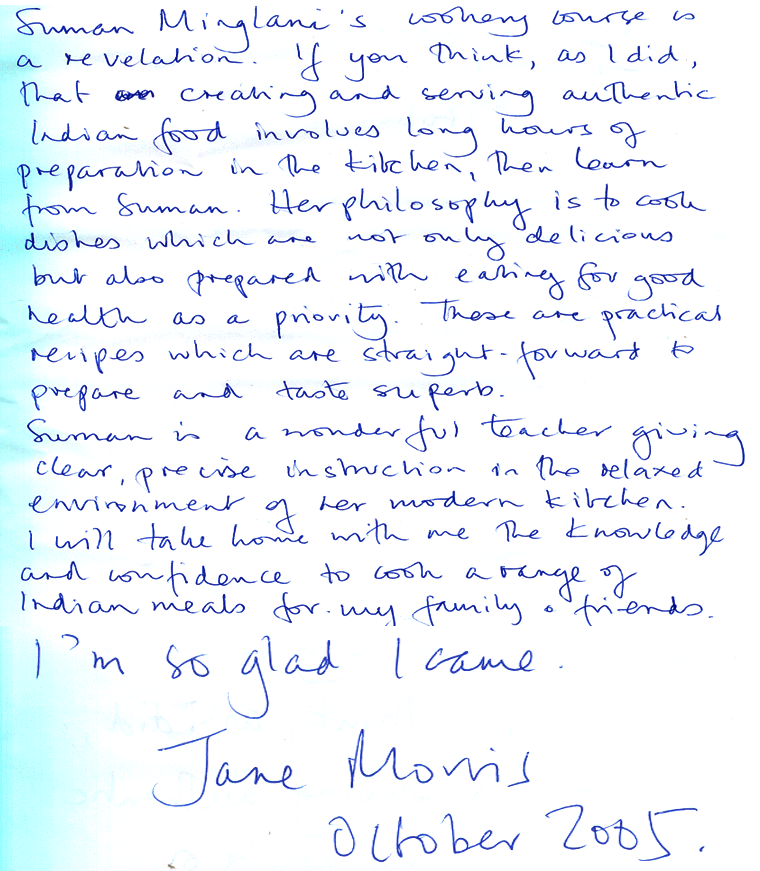 Suman Minglani's cookery course is
a revelation. If you think, as I did,
that creating and serving authentic
Indian food involves long hours of
preparation in the kitchen, then learn
from Suman. Her philosophy is to cook
dishes which are not only delicious
but also prepared with eating for good
health as a priority. These are practical
recipes which are straight-forward to
prepare and taste superb.
Suman is a wonderful teacher giving
clear, precise instruction in the relaxed
environment of her modern kitchen.
I will take home with me the knowledge
and confidence to cook a range of
Indian meals for my family & friends.
I'm so glad I came.
Jane Morris
October 2005.